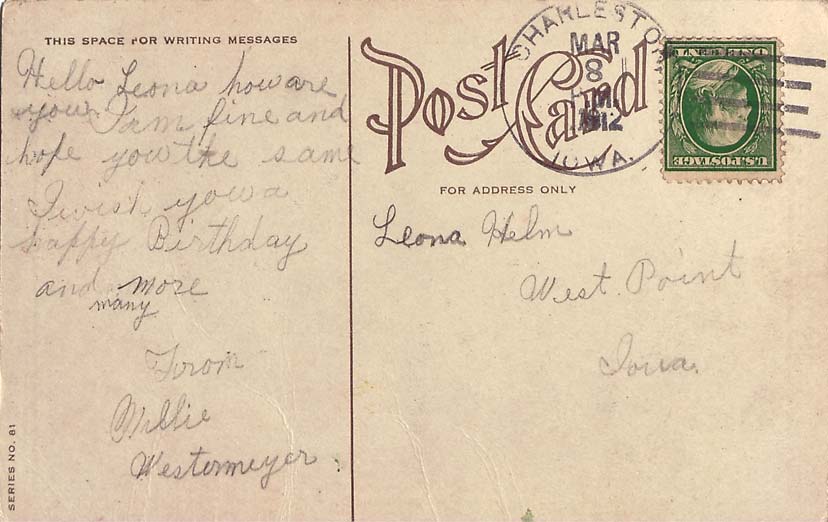 THIS SPACE FOR WRITING MESSAGES
Hello Leona how are
you I am fine and
hope you the same
I wish you a
happy Birthday
and more
many
From
Willie
Westermeyer
SERIES NO. 81
Post Card
FOR ADDRESS ONLY
Leona Helm
West Point
Iowa.
CHARLESTON
MAR
8
1912
IOWA.
U.S. POSTAGE
ONE CENT